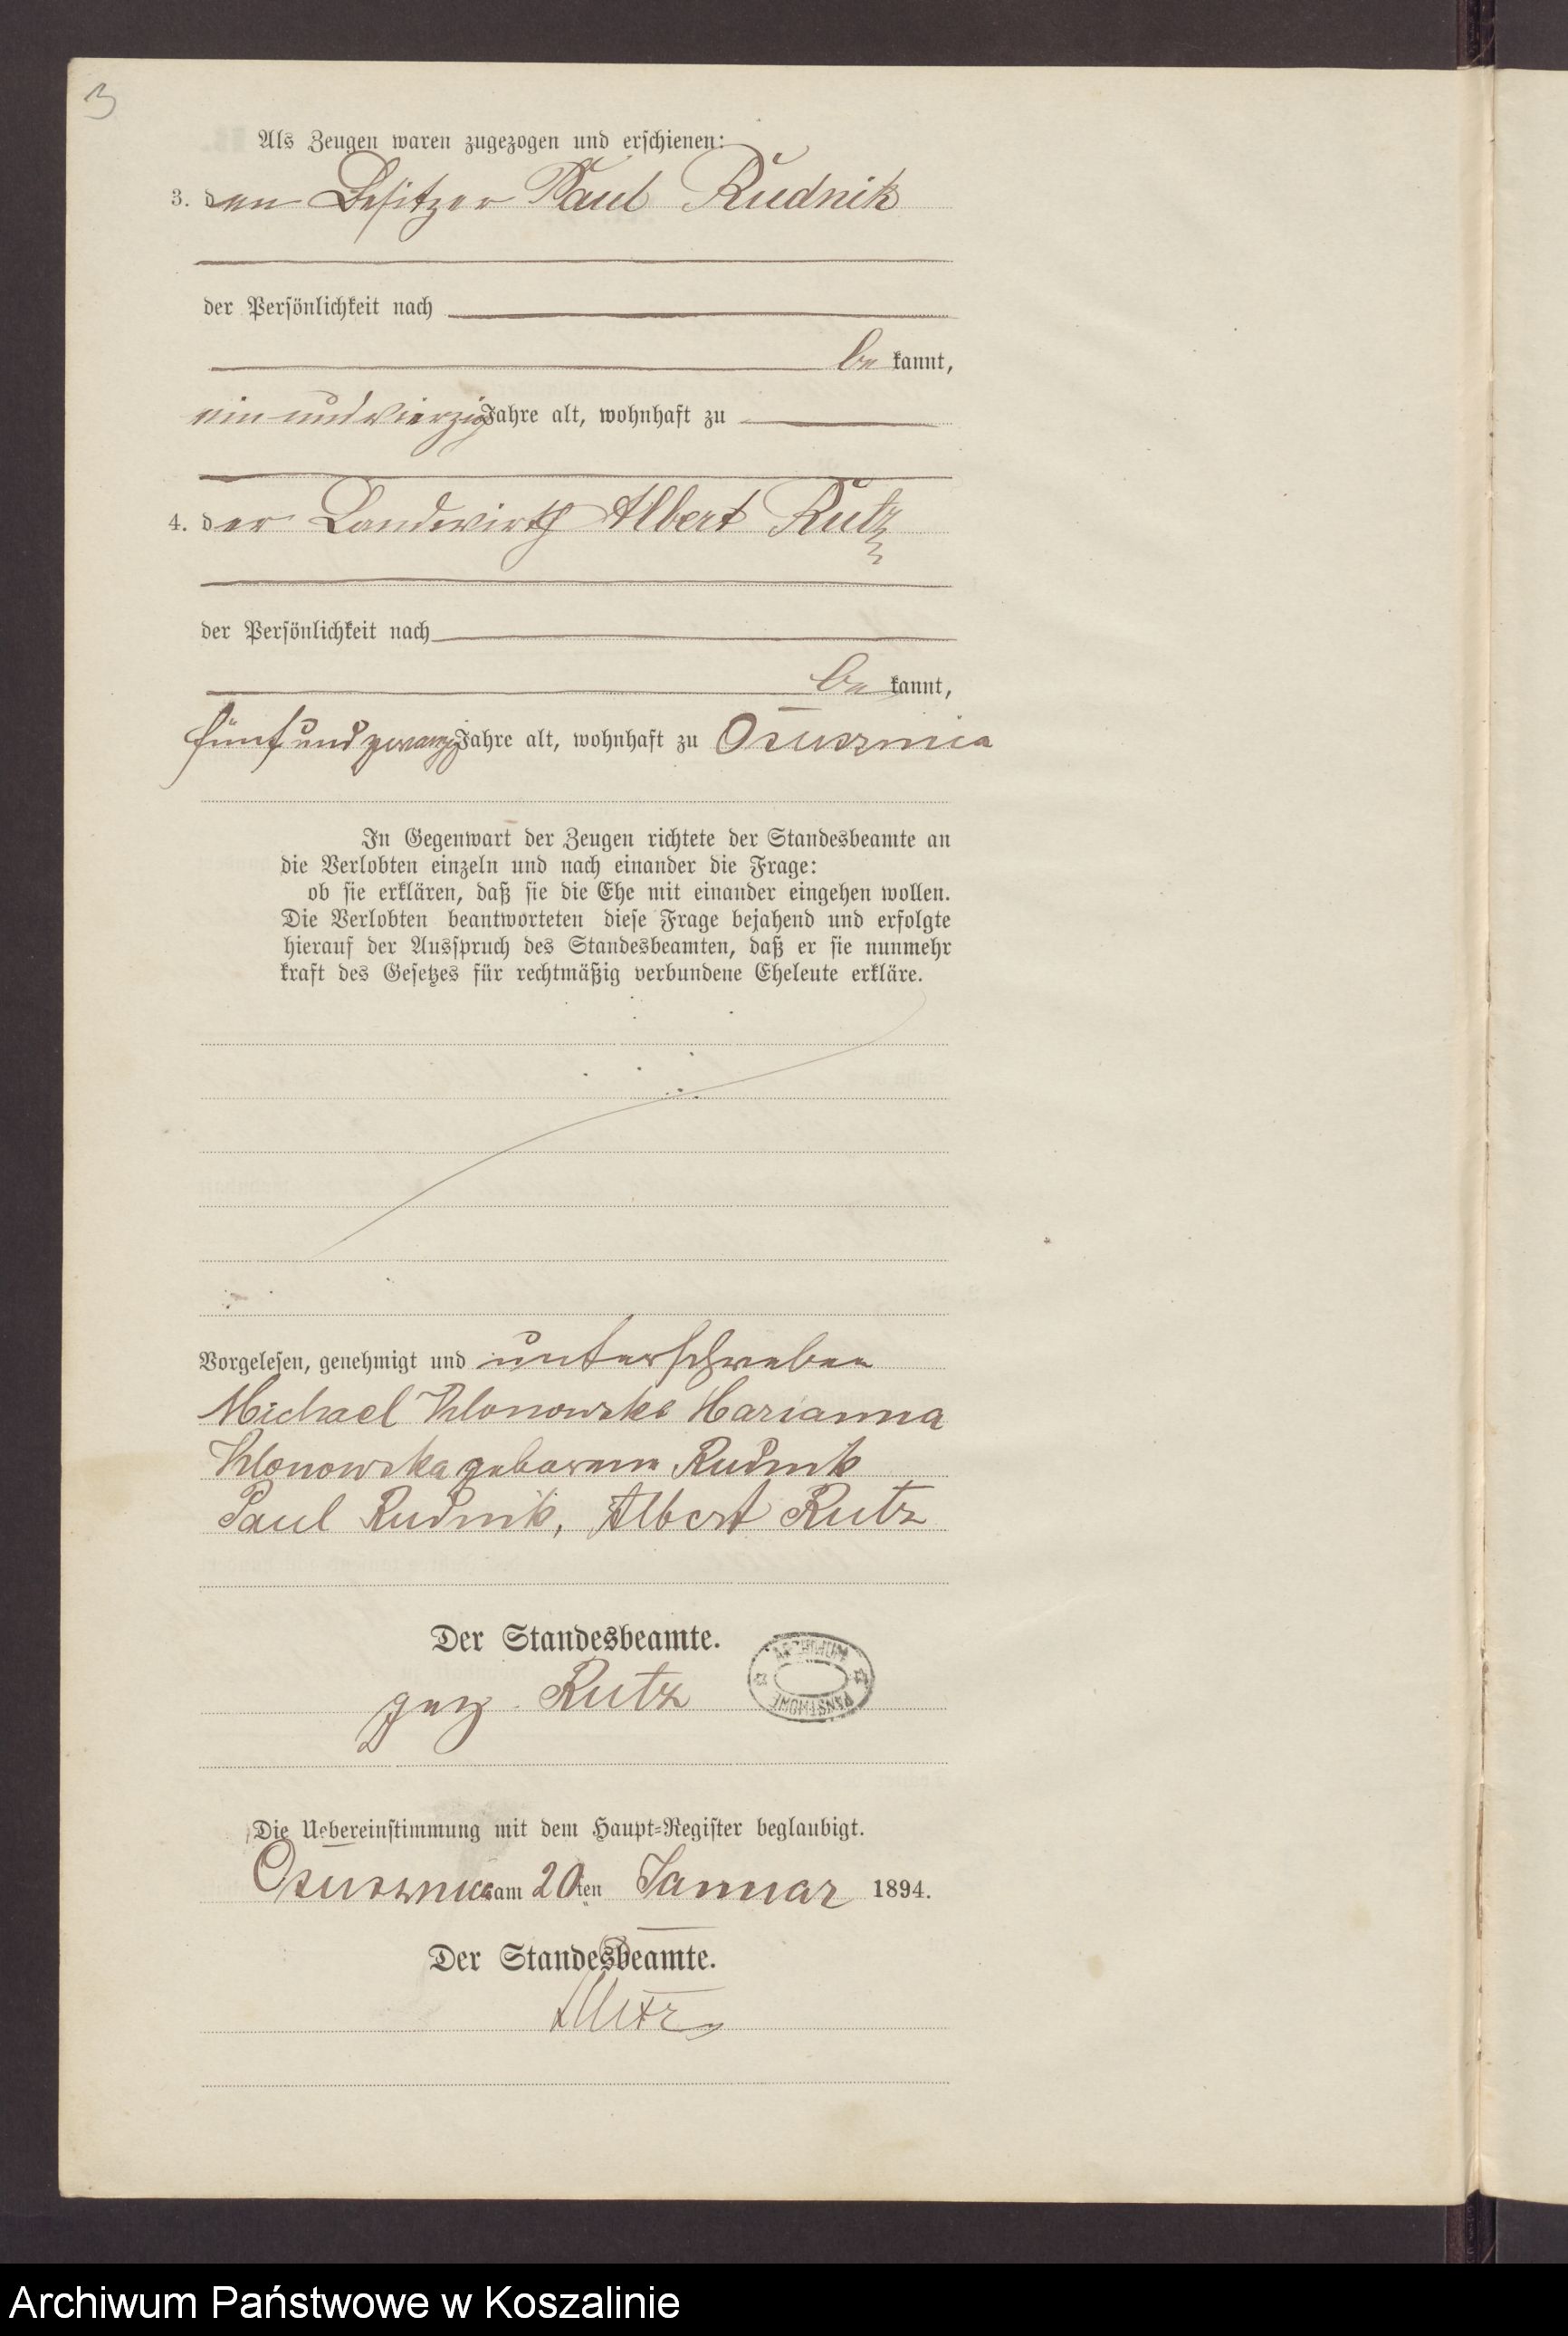 3
Als Zeugen waren zugezogen und erschienen:
3. den Besitzer Paul Rudnik
der Persönlichkeit nach
be kannt,
ein und vierzig Jahre alt, wohnhaft zu
4. der Landwirth Albert Rutz
der Persönlichkeit nach
be kannt,
fünf und zwanzig Jahre alt, wohnhaft zu Osusznica
In Gegenwart der Zeugen richtete der Standesbeamte an
die Verlobten einzeln und nach einander die Frage:
ob sie erklären, daß sie die Ehe mit einander eingehen wollen.
Die Verlobten beantworteten diese Frage bejahend und erfolgte
hierauf der Ausspruch des Standesbeamten, daß er sie nunmehr
kraft des Gesetzes für rechtmäßig verbundene Eheleute erkläre.
Vorgelesen, genehmigt und unterschrieben
Michael Klonowski Marianna
Klonowska geborene Rudnik
Paul Rudnik, Albert Rutz
Der Standesbeamte.
gez. Rutz
ARCHIWUM PAŃSTWOWE
Die Uebereinstimmung mit dem Haupt-Register beglaubigt.
Osusznica am 20ten Januar 1894.
Der Standesbeamte.
Archiwum Państwowe w Koszalinie